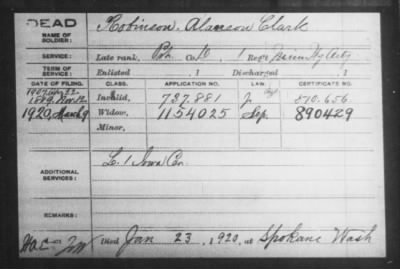 DEAD
NAME OF SOLDIER:
Robinson, Alanson Clark
SERVICE:
Late rank, Pvt. Co. D, 1 Reg't
TERM OF SERVICE:
Enlisted , 1 Discharged , 1
DATE OF FILING. CLASS. APPLICATION NO. LAW. CERTIFICATE NO.
1907
1889, Nov. 12 Invalid, 737.881 870.656
1920, March 9 Widow, 1154025 Sep. 890429
Minor,
ADDITIONAL SERVICES:
L. 1 Iowa Cav.
REMARKS:
Died Jan 23, 1920, at Spokane Wash